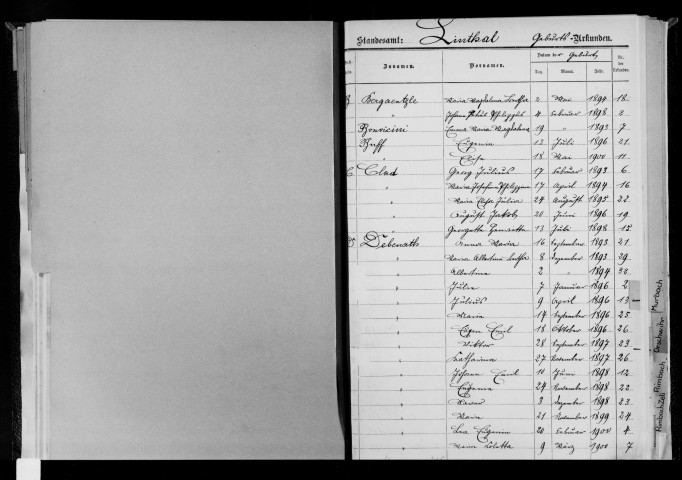 Standesamt: Linthal Geburts-Urkunden.
Zunamen. Vornamen. Datum der Geburt Nr. der Urkunden.
Tag. Monat. Jahr.
B Bogaentzle Maria Magdalena 2 Mai 1894 18
" Johann Philippus 4 Februar 1898 2
Bonvicini Emma Maria Magdalena 19 " 1893 7
Buff Eugenia 13 Juli 1896 21
" Elise 18 Mai 1900 11
C Clad Georg Julius 17 Februar 1893 6
" Maria Josefine Philippine 17 April 1894 16
" Maria Elise Julia 24 August 1895 22
" August Jakob 20 Juni 1896 19
" Georgette Henriette 13 Juli 1898 15
D Debenath Anna Maria 16 September 1893 21
" Maria Albertine 8 Dezember 1893 29
" Albertine 2 " 1894
" Julie 7 Januar 1896 2
" Julius 9 April 1896 13
" Maria 14 September 1896 25
" Eugen Emil 18 Oktober 1896 26
" Viktor 28 September 1897 23
" Katharina 27 November 1897 26
" Johann Emil 10 Juni 1898 12
" Eugenia 24 November 1898 22
" 3 Dezember 1898 23
" Maria 21 November 1899 24
" Eugenia 20 Februar 1900 4
" Maria 9 März 1900 7
Murbach
Orschweihr
Rimbach
Rimbachzell